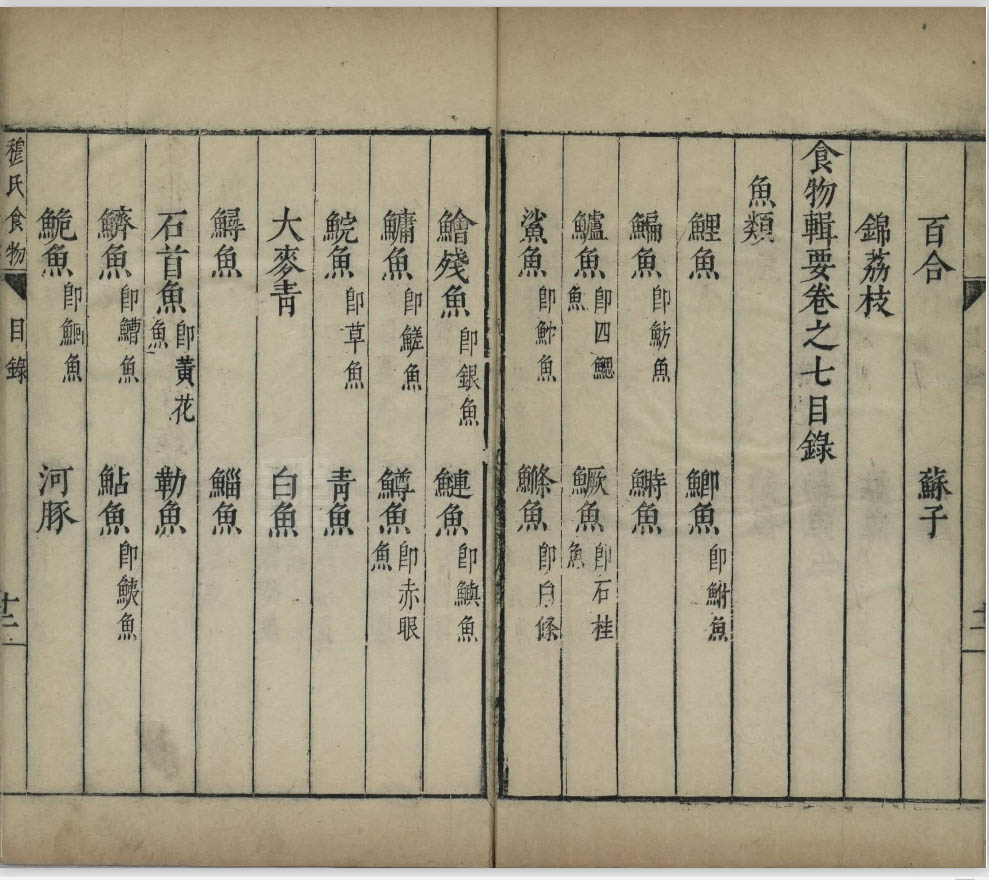 百合 蘇子
錦荔枝
食物輯要卷之七目錄
魚類
鯉魚 鯽魚即鮒魚
鯿魚即魴魚 鰣魚
鱸魚即四鰓魚 鱖魚即石桂魚
鯊魚即鮀魚 鰷魚即白鰷
鱠殘魚即銀魚 鰱魚即鱮魚
鱅魚即鱃魚 鱒魚即赤眼魚
鯇魚即草魚 青魚
大麥青 白魚
鱘魚 鯔魚
石首魚即黃花魚 勒魚
鱭魚即鰽魚 鮎魚即鮧魚
鮠魚即鮰魚 河豚
穆氏食物 目錄 十二